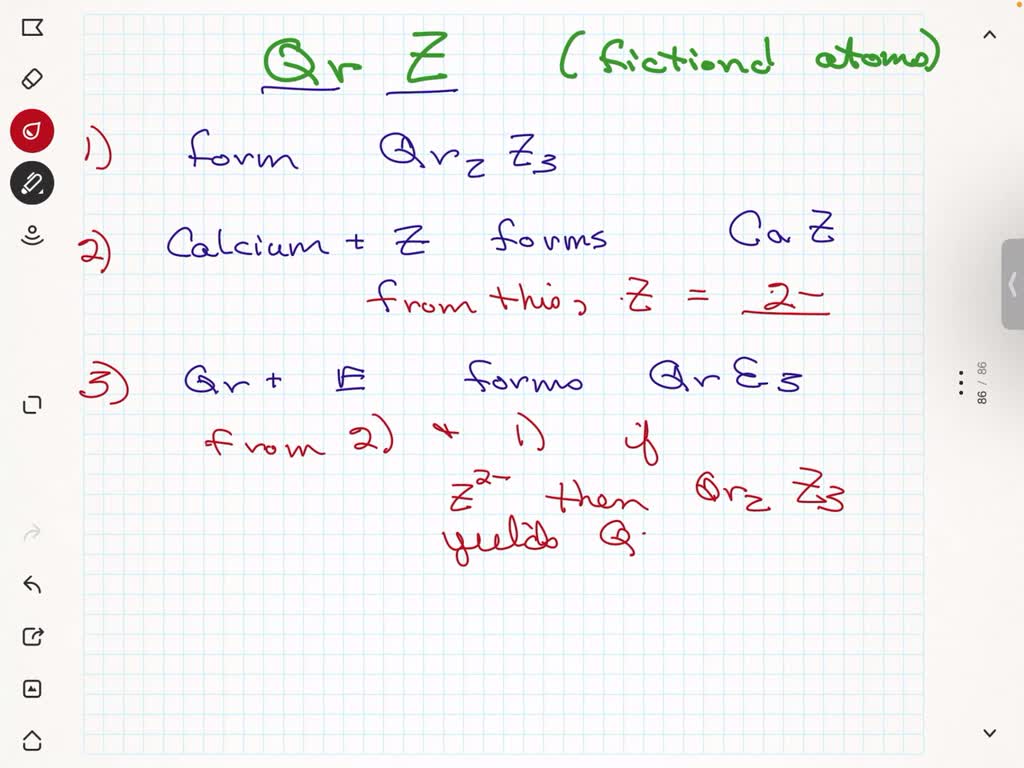 Qr Z (fictiond atoms)
1) form Qr₂ Z₃
2) Calcium + Z forms Ca Z
from this, Z = 2-
3) Qr + E forms Qr E₃
from 2) + 1) if
Z²⁻ then Qr₂ Z₃
yields Q
86 / 86